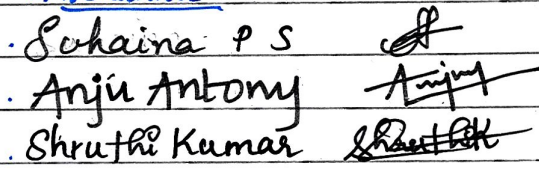 . Suhaina P S
. Anju Antony Anjuy
. Shruthi Kumar ShruthiK